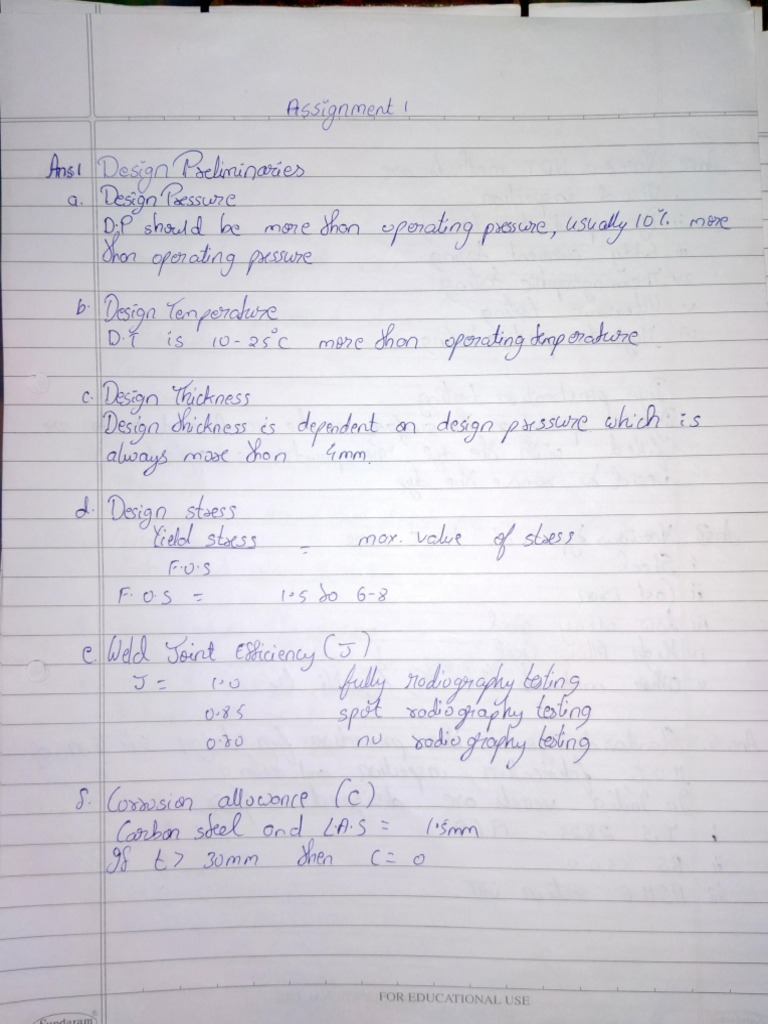 Assignment 1
Ans1 Design Preliminaries
a. Design Pressure
D.P should be more than operating pressure, usually 10% more
than operating pressure
b. Design Temperature
D.T is 10-25°C more than operating temperature
c. Design Thickness
Design thickness is dependent on design pressure which is
always more than 4mm.
d. Design stress
Yield stress = max. value of stress
F.O.S
F.O.S = 1.5 to 6-8
e. Weld Joint Efficiency (J)
J = 1.0 fully radiography testing
0.85 spot radiography testing
0.80 no radiography testing
f. Corrosion allowance (C)
Carbon steel and L.A.S = 1.5mm
If t > 30mm then C = 0
FOR EDUCATIONAL USE
Sundaram